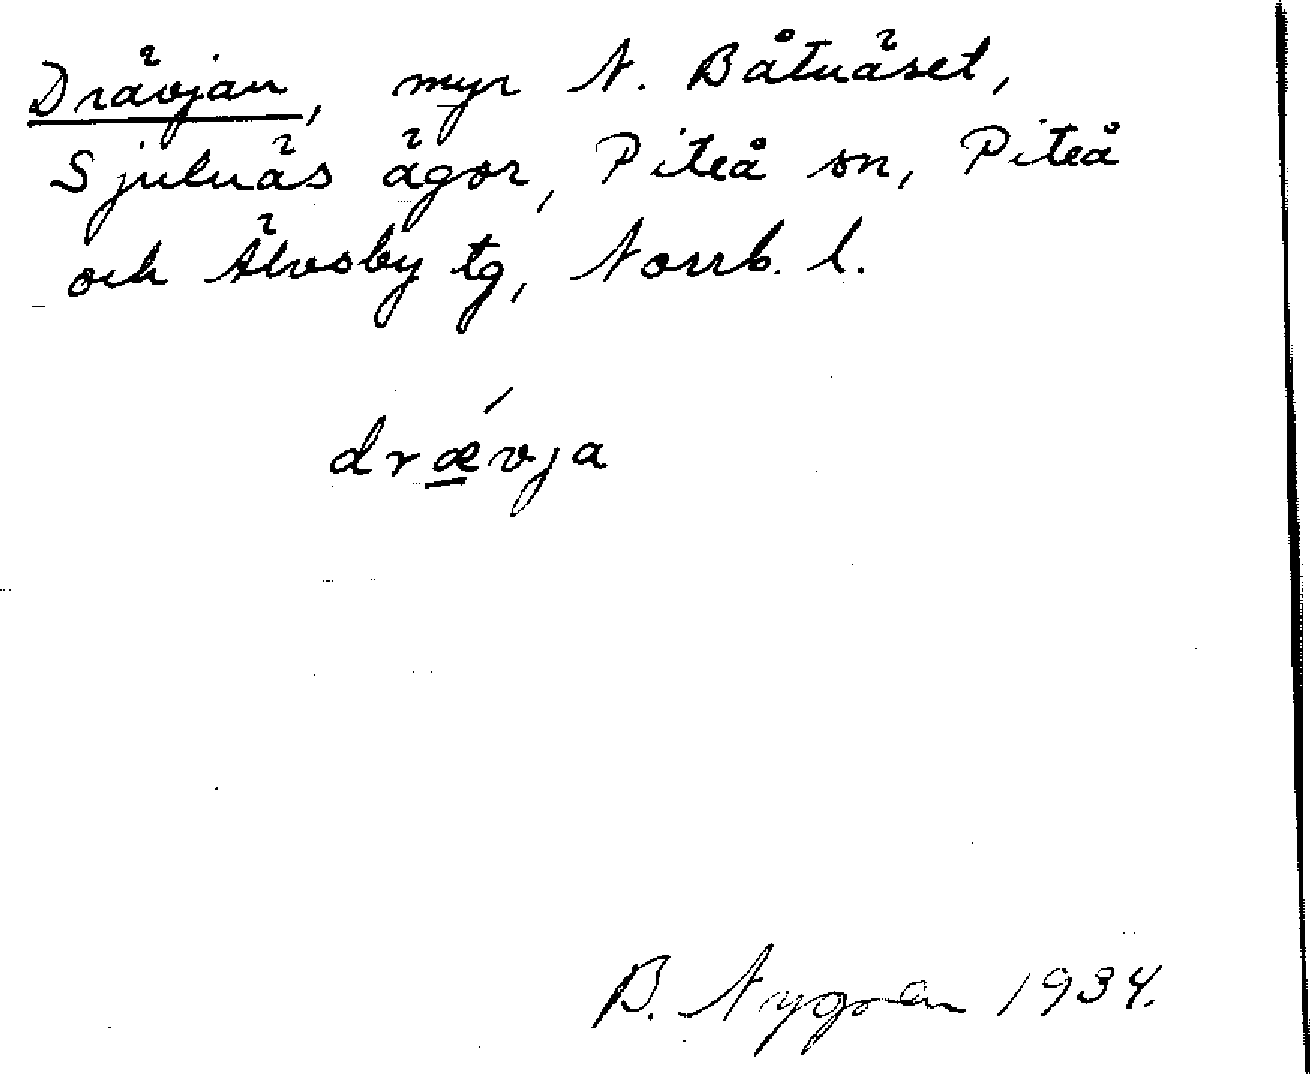 Drävjan, myr N. Båtnäset,
Sjulnäs ägor, Piteå sn, Piteå
och Älvsby tg, Norrb. l.
drǽvja
B. Nygren 1934.